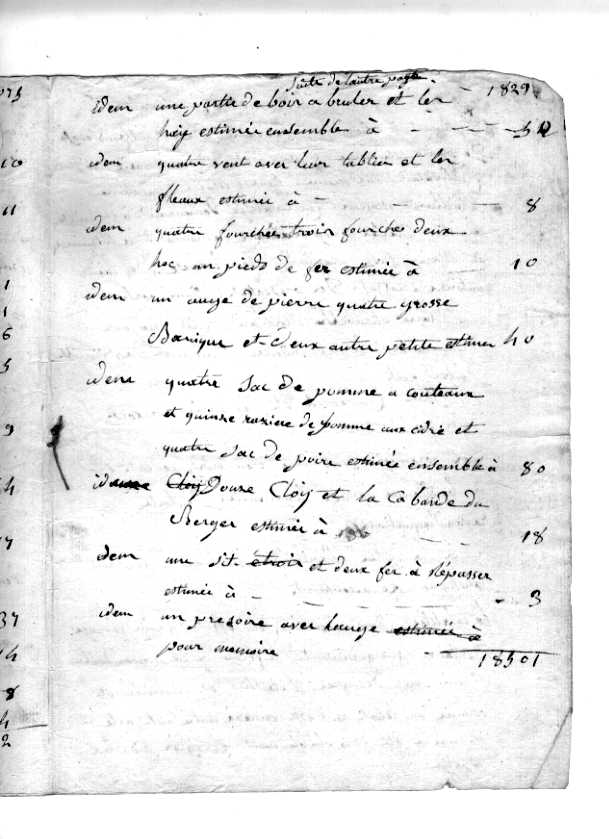 suite de l'autre page. 1829
idem une partie de bois a bruler et les
estimée ensemble à 50
idem quatre vent avec leur tablier et les
fleaux estimée à 8
idem quatre fourchée trois fourche deux
hoc un pieds de fer estimée à 10
idem un auge de pierre quatre grosse
Barique et deux autre petite estimer 40
idem quatre sac de pomme a couteaux
et quinze raziere de pomme aux cidre et
quatre sac de poire estimée ensemble à 80
id Cloÿ Douze Cloÿ et la Cabande du
Berger estimée à 18
idem une et deux fer à Répasser
estimée à 3
idem un presoire avec lauge estimée à
pour memoire 18501
075
10
11
1
1
6
5
9
4
7
37
14
8
4
2